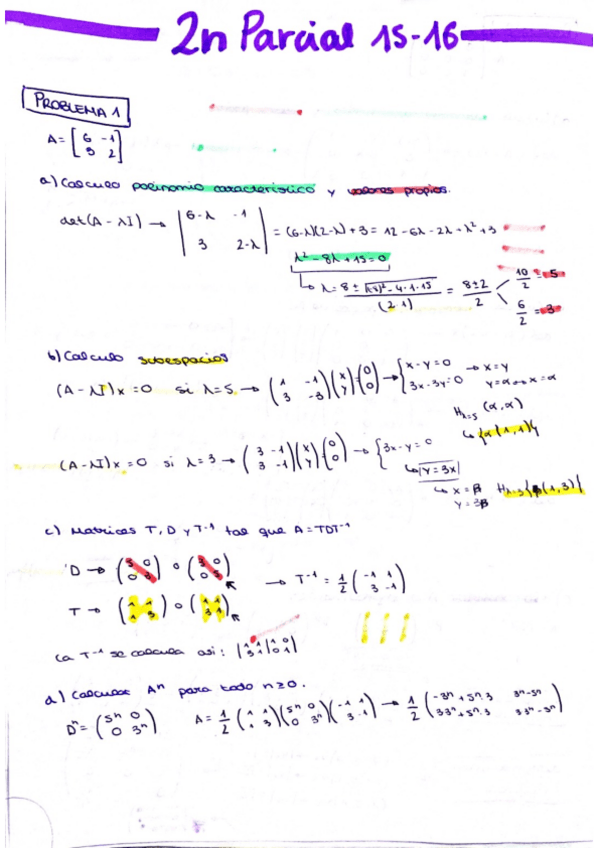 2n Parcial 15-16
PROBLEMA 1
A = [ 6 -1
3 2 ]
a) Calculo polinomio característico y valores propios.
det(A - λI) → | 6-λ -1
3 2-λ | = (6-λ)(2-λ) + 3 = 12 - 6λ - 2λ + λ² + 3
λ² - 8λ + 15 = 0
λ = 8 ± √(-8)² - 4·1·15 / (2·1) = 8±2 / 2
10/2 = 5
6/2 = 3
b) Calculo subespacios
(A - λI)x = 0 si λ = 5 → ( 1 -1
3 -3 ) ( x
y ) = ( 0
0 ) → { x - y = 0 → x = y
3x - 3y = 0 y = α → x = α
Hλ=5 (α, α)
↳ {α(1,1)}
(A - λI)x = 0 si λ = 3 → ( 3 -1
3 -1 ) ( x
y ) = ( 0
0 ) → { 3x - y = 0
↳ |y = 3x|
↳ x = β Hλ=3 {β(1,3)}
y = 3β
c) Matrices T, D y T⁻¹ tal que A = TDT⁻¹
T → ( 1 1
1 3 ) o ( 1 1
3 1 )
→ T⁻¹ = 1/2 ( -1 1
3 -1 )
La T⁻¹ se calcula asi: | 1 1 | 1 0
3 1 | 0 1 |
d) Calcular Aⁿ para todo n≥0.
Dⁿ = ( 5ⁿ 0
0 3ⁿ ) A = 1/2 ( 1 1
1 3 ) ( 5ⁿ 0
0 3ⁿ ) ( -1 1
3 -1 ) → 1/2 ( -3ⁿ + 5ⁿ·3 3ⁿ-5ⁿ
3·3ⁿ + 5ⁿ·3 3·3ⁿ-3ⁿ )